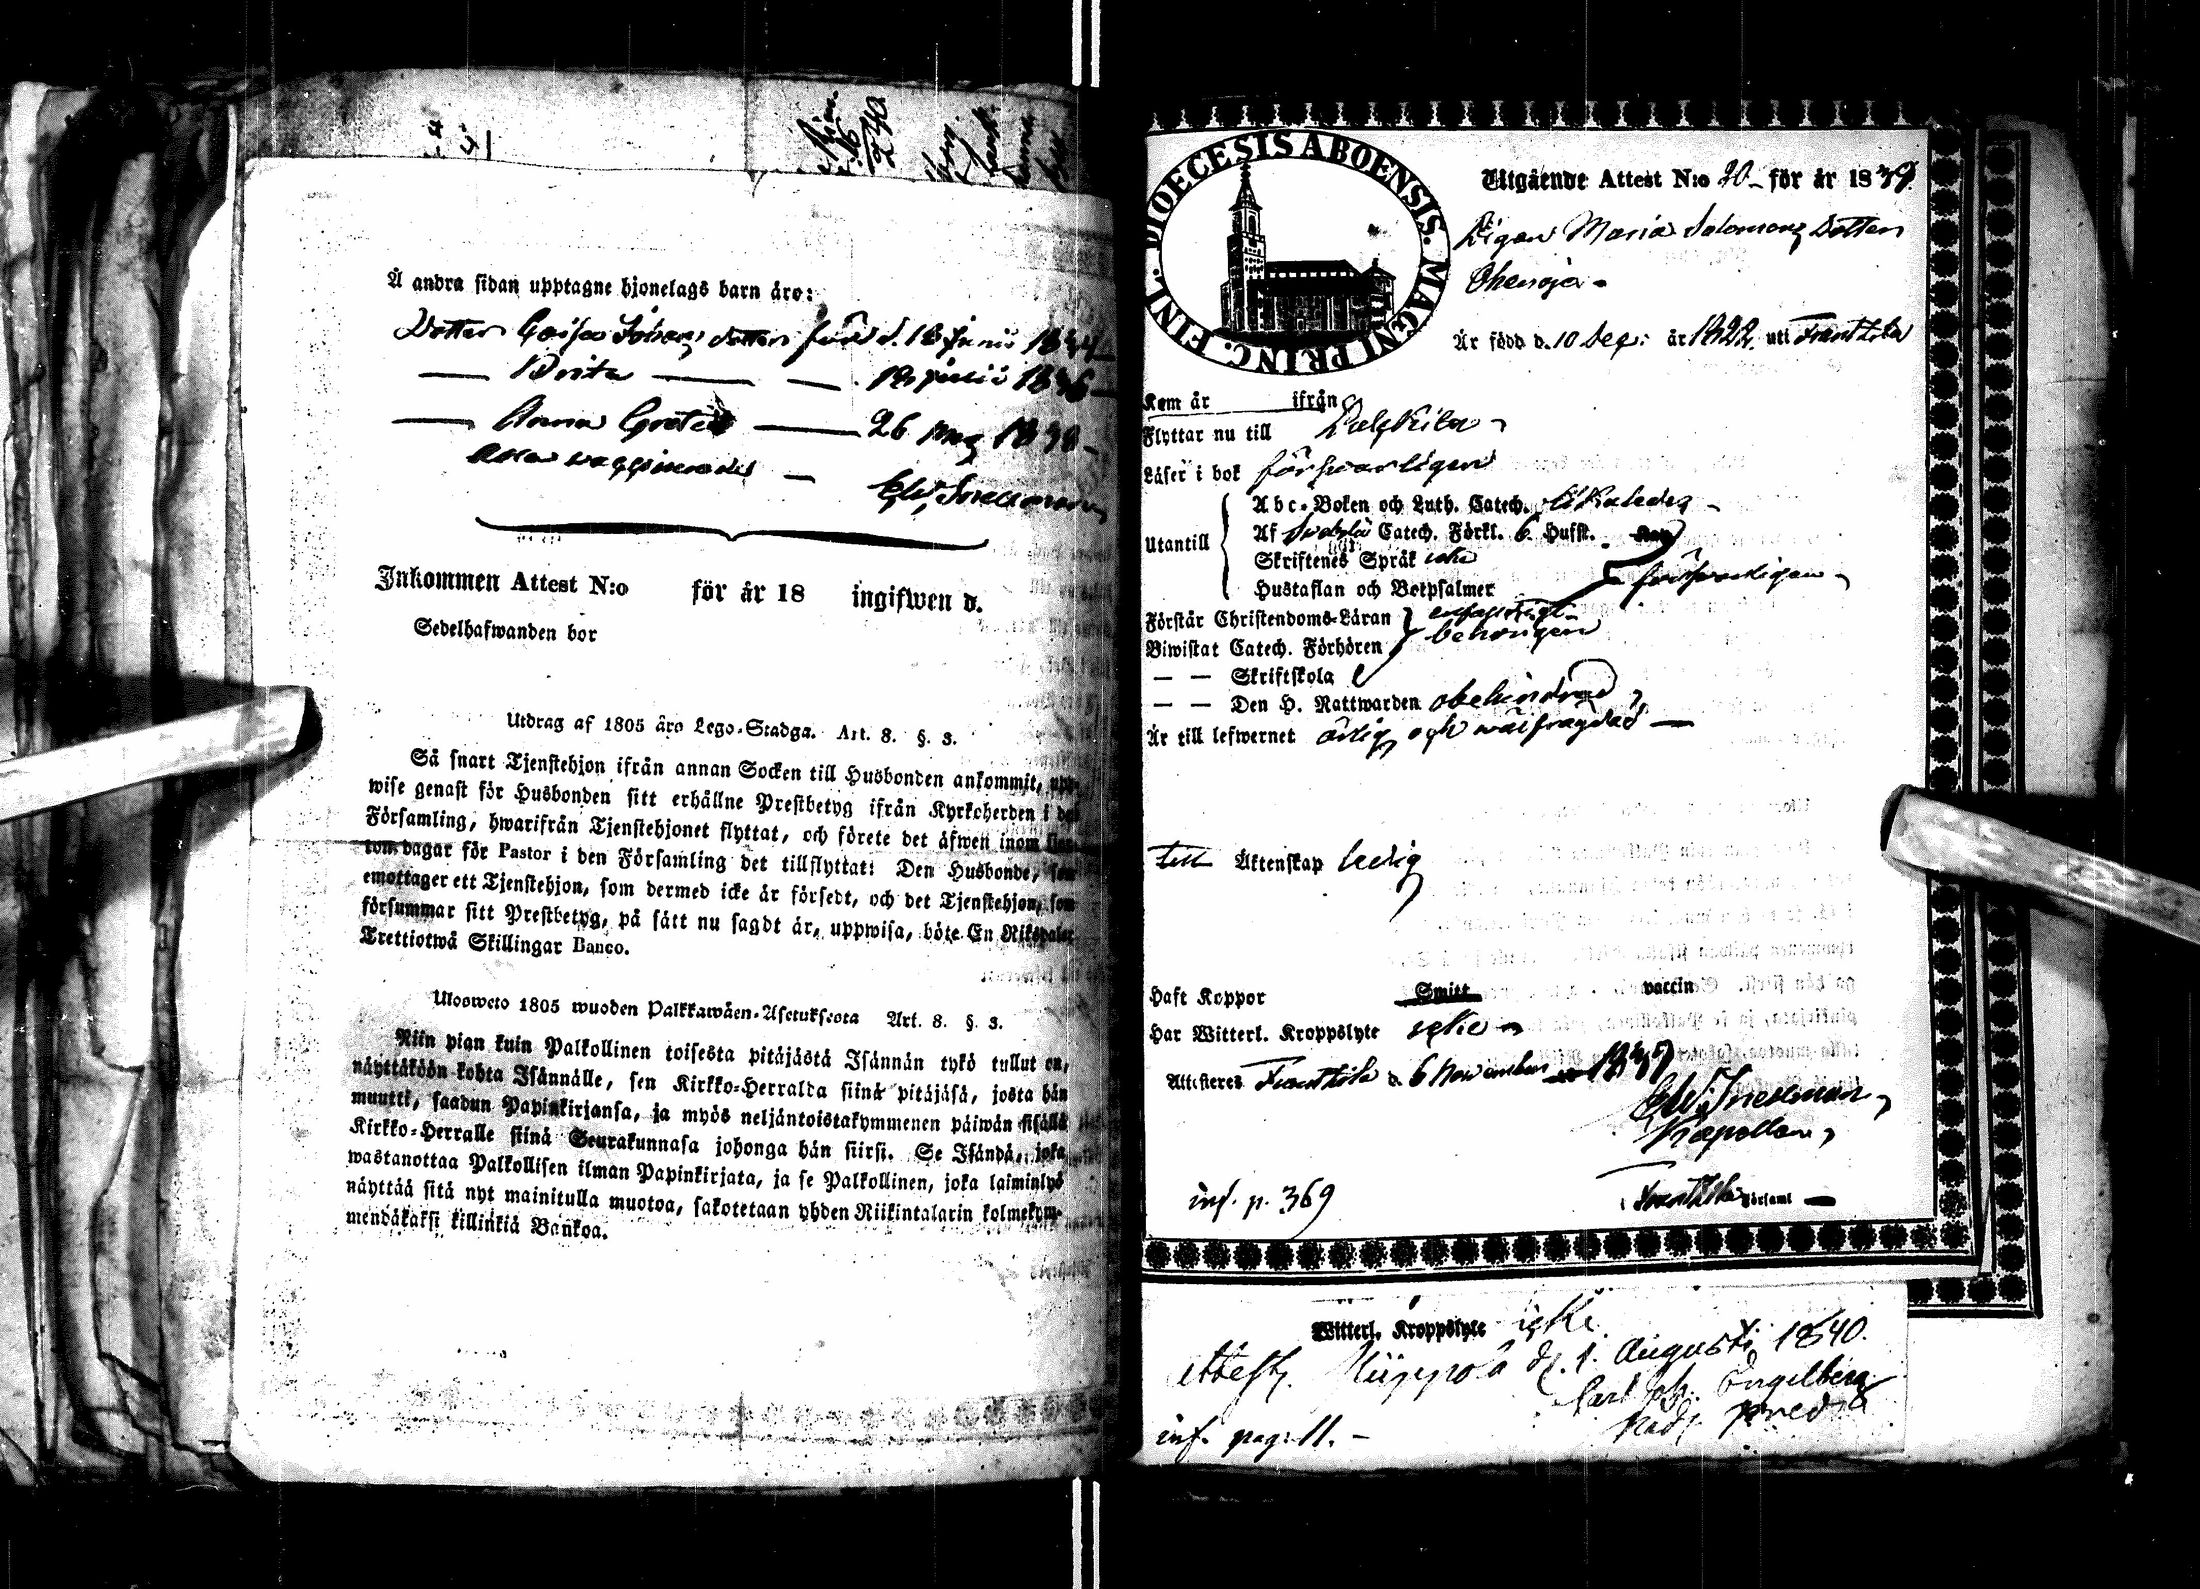 Å andra sidan upptagne hjonelags barn äro:
Dotter Caisa Johans dotter född d. 18 Junii 1834
— Brita — — 19 Julii 1836 —
— Anna Greta — 26 1838 —
Alla waccinerade —
Snellman
Inkommen Attest N:o för år 18 ingifwen d.
Sedelhafwanden bor
Utdrag af 1805 års Lego-Stadga. Art. 8. §. 3.
Så snart Tjenstehjon ifrån annan Socken till Husbonden ankommit, upp-
wise genast för Husbonden sitt erhållne Prestbetyg ifrån Kyrkoherden i den
Församling, hwarifrån Tjenstehjonet flyttat, och förete det äfwen inom fjor-
ton dagar för Pastor i den Församling det tillflyttat: Den Husbonde, som
emottager ett Tjenstehjon, som dermed icke är försedt, och det Tjenstehjon, som
försummar sitt Prestbetyg, på sätt nu sagdt är, uppwisa, böte En Riksdaler
Trettiotwå Skillingar Banco.
Ulosweto 1805 wuoden Palkkawäen-Asetuksesta Art. 8. §. 3.
Niin pian kuin Palkollinen toisesta pitäjästä Isännän tykö tullut on,
näyttäköön kohta Isännälle, sen Kirkko-Herralda siinä pitäjäsä, josta hän
muutti, saadun Papinkirjansa, ja myös neljäntoistakymmenen päiwän sisällä
Kirkko-Herralle siinä Seurakunnasa johonga hän siirsi. Se Isändä, joka
wastanottaa Palkollisen ilman Papinkirjata, ja se Palkollinen, joka laiminlyö
näyttää sitä nyt mainitulla muotoa, sakotetaan yhden Riikintalarin kolmekym-
mendäkaksi killinkiä Bankoa.
DIOECESIS ABOENSIS. MAGNI PRINC. FINL.
Utgående Attest N:o 20 – för år 1839
Pigan Maria Salomons Dotter
Ohenoja –
Är född d. 10 Dec: år 1822 uti Frantsila
Kom år ifrån
Flyttar nu till Pulkkila –
Läser i bok förswarligen
Utantill
Abc-Boken och Luth. Catech.
Af Svebelii Catech. Förkl. 6 Hufst.
Skriftenes Språk icke
Hustaflan och Botpsalmer förswarligen –
Förstår Christendoms-Läran enfaldigt
Biwistat Catech. Förhören behörigen
— — Skriftskola
— — Den H. Nattwarden obehindrad,
Är till lefwernet ärlig och wälfrägdad —
till Äktenskap ledig
Haft Koppor Smitt vaccin
Har Witterl. Kroppslyte icke –
Attesteres Frantsila d. 6 November 1839
Snellman,
Kapellan,
inf. p. 369
Frantsila Församl —
Witterl. Kroppslyte icke
Attest. Kiuppola d. 1. Augusti 1840.
Carl Joh. Engelberg
inf. pag: 11. –